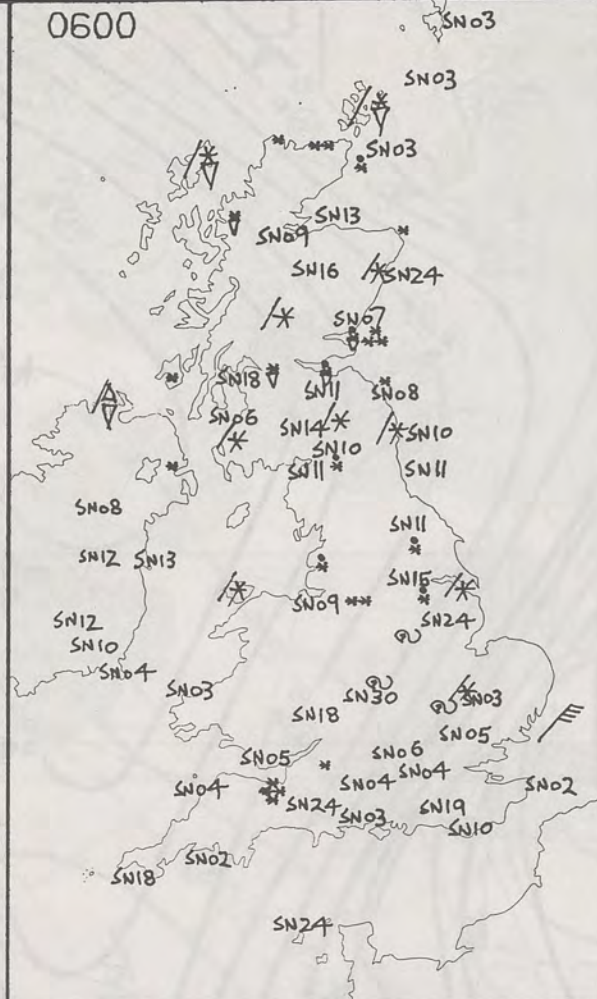 0600
SN03
SN03
SN03
SN13
SN09
SN16
SN24
SN07
SN18
SN11
SN08
SN06
SN14
SN10
SN10
SN11
SN11
SN08
SN11
SN12
SN13
SN15
SN09
SN24
SN12
SN10
SN04
SN03
SN30
SN03
SN18
SN05
SN06
SN05
SN04
SN04
SN04
SN02
SN24
SN03
SN19
SN10
SN02
SN18
SN24